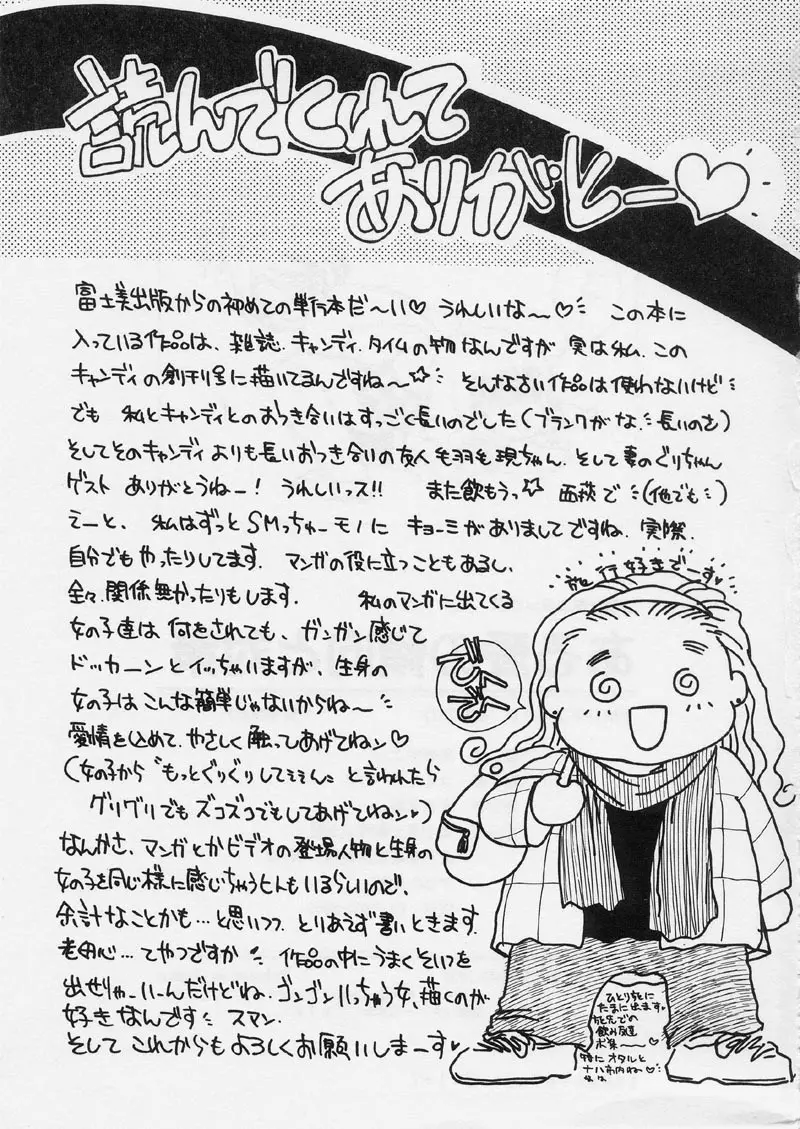 読んでくれて
ありがとー♡
富士美出版からの初めての単行本だ〜い♡ うれしいな〜♡ この本に
入っている作品は、雑誌.キャンディ.タイムの物なんですが 実は私、この
キャンディの創刊号に描いてるんですね〜☆ そんな古い作品は使わないけど
でも 私とキャンディとのおつき合いはすっごく長いのでした(ブランクがな.長いのさ)
そしてそのキャンディよりも長いおつき合いの友人 毛羽毛現ちゃん、そして妻のぐりちゃん
ゲスト ありがとうねー! うれしいっス!! また飲もうっ☆ 西荻で(他でも)
えーと、私はずっとSMっちゅーモノに キョーミがありましてですね、実際、
自分でもやったりしてます. マンガの役に立つこともあるし、
全々、関係無かったりもします. 私のマンガに出てくる
女の子達は 何をされても、ガンガン感じて
ドッカーンとイッちゃいますが、生身の
女の子はこんな簡単じゃないからね〜
愛情を込めて、やさしく触ってあげてねン♡
(女の子から〝もっとぐりぐりしてぇぇん〟と言われたら
グリグリでもズコズコでもしてあげてねン♥)
なんかさ、マンガとかビデオの登場人物と生身の
女の子を同じ様に感じちゃうヒトもいるらしいので、
余計なことかも…と思いつつ、とりあえず書いときます.
老婆心…てやつですか 作品の中にうまくそいつを
出せりゃーいーんだけどね、ゴンゴンいっちゃう女、描くのが
好きなんです スマン.
そして これからもよろしくお願いしまーす♥
旅行好きでーす♥
らくがき
ひとりでに
たまに出ます♥
飲み友達
ボ集〜♡
特にオタルと